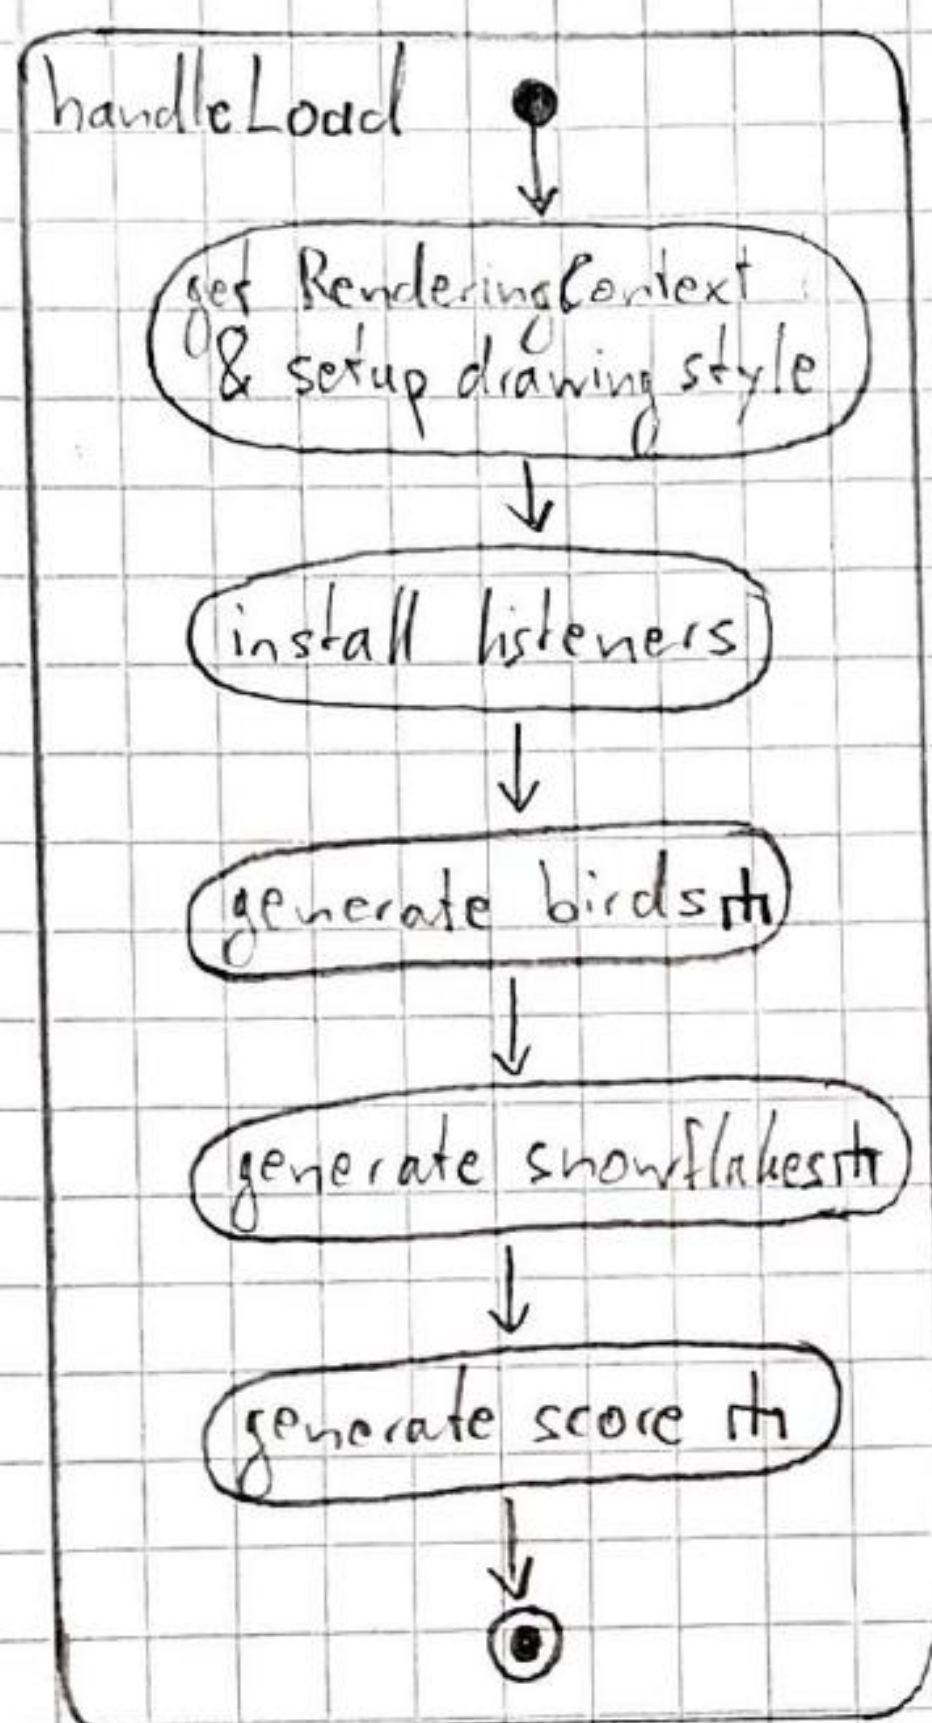 handleLoad
get RenderingContext
& setup drawing style
install listeners
generate birds
generate snowflakes
generate score